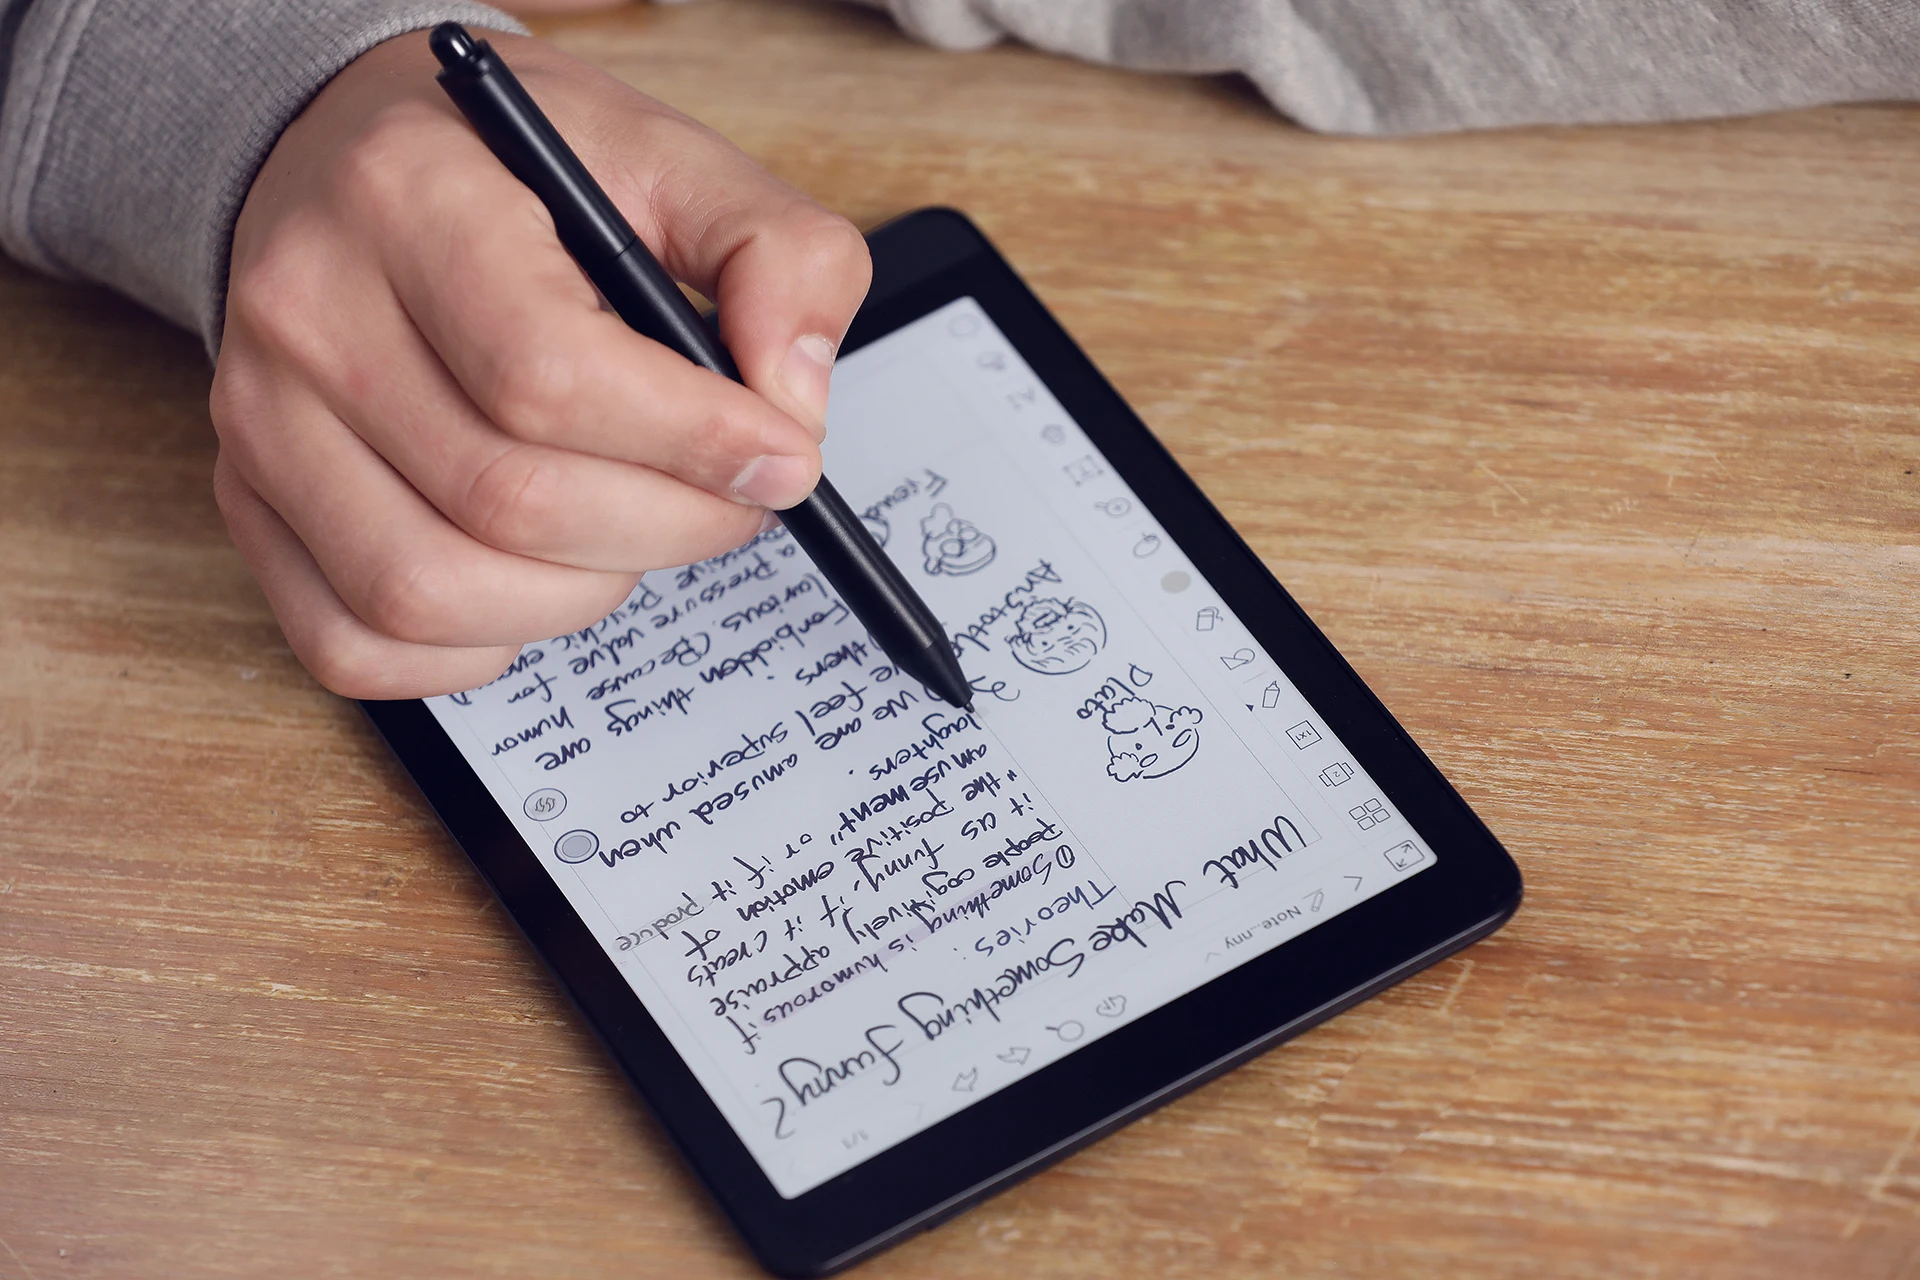 Note...nny
1/1
What Make Something funny?
Theories:
①Something is humorous if
people cogitively appraise
it as funny, if it creats
"the positive emotion of
amusement" or if it produce
laughters.
2
We are amused when
we feel superior to
others
Forbidden things are
larious. (Because humor
a pressure valve for
psychic
Plato
Aristotle
Freud
1X1
2
T